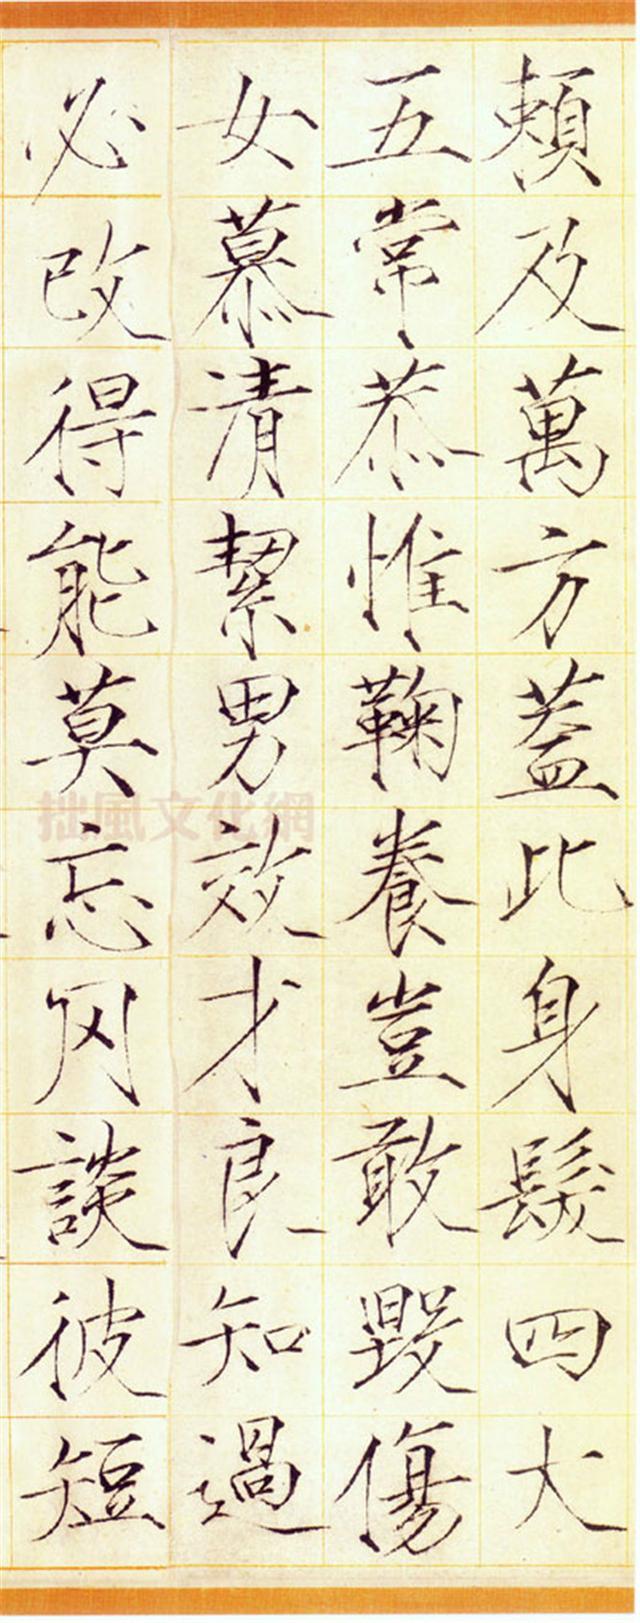 頼及萬方蓋此身髮四大
五常恭惟鞠養豈敢毀傷
女慕清絜男效才良知過
必改得能莫忘罔談彼短
拙風文化網